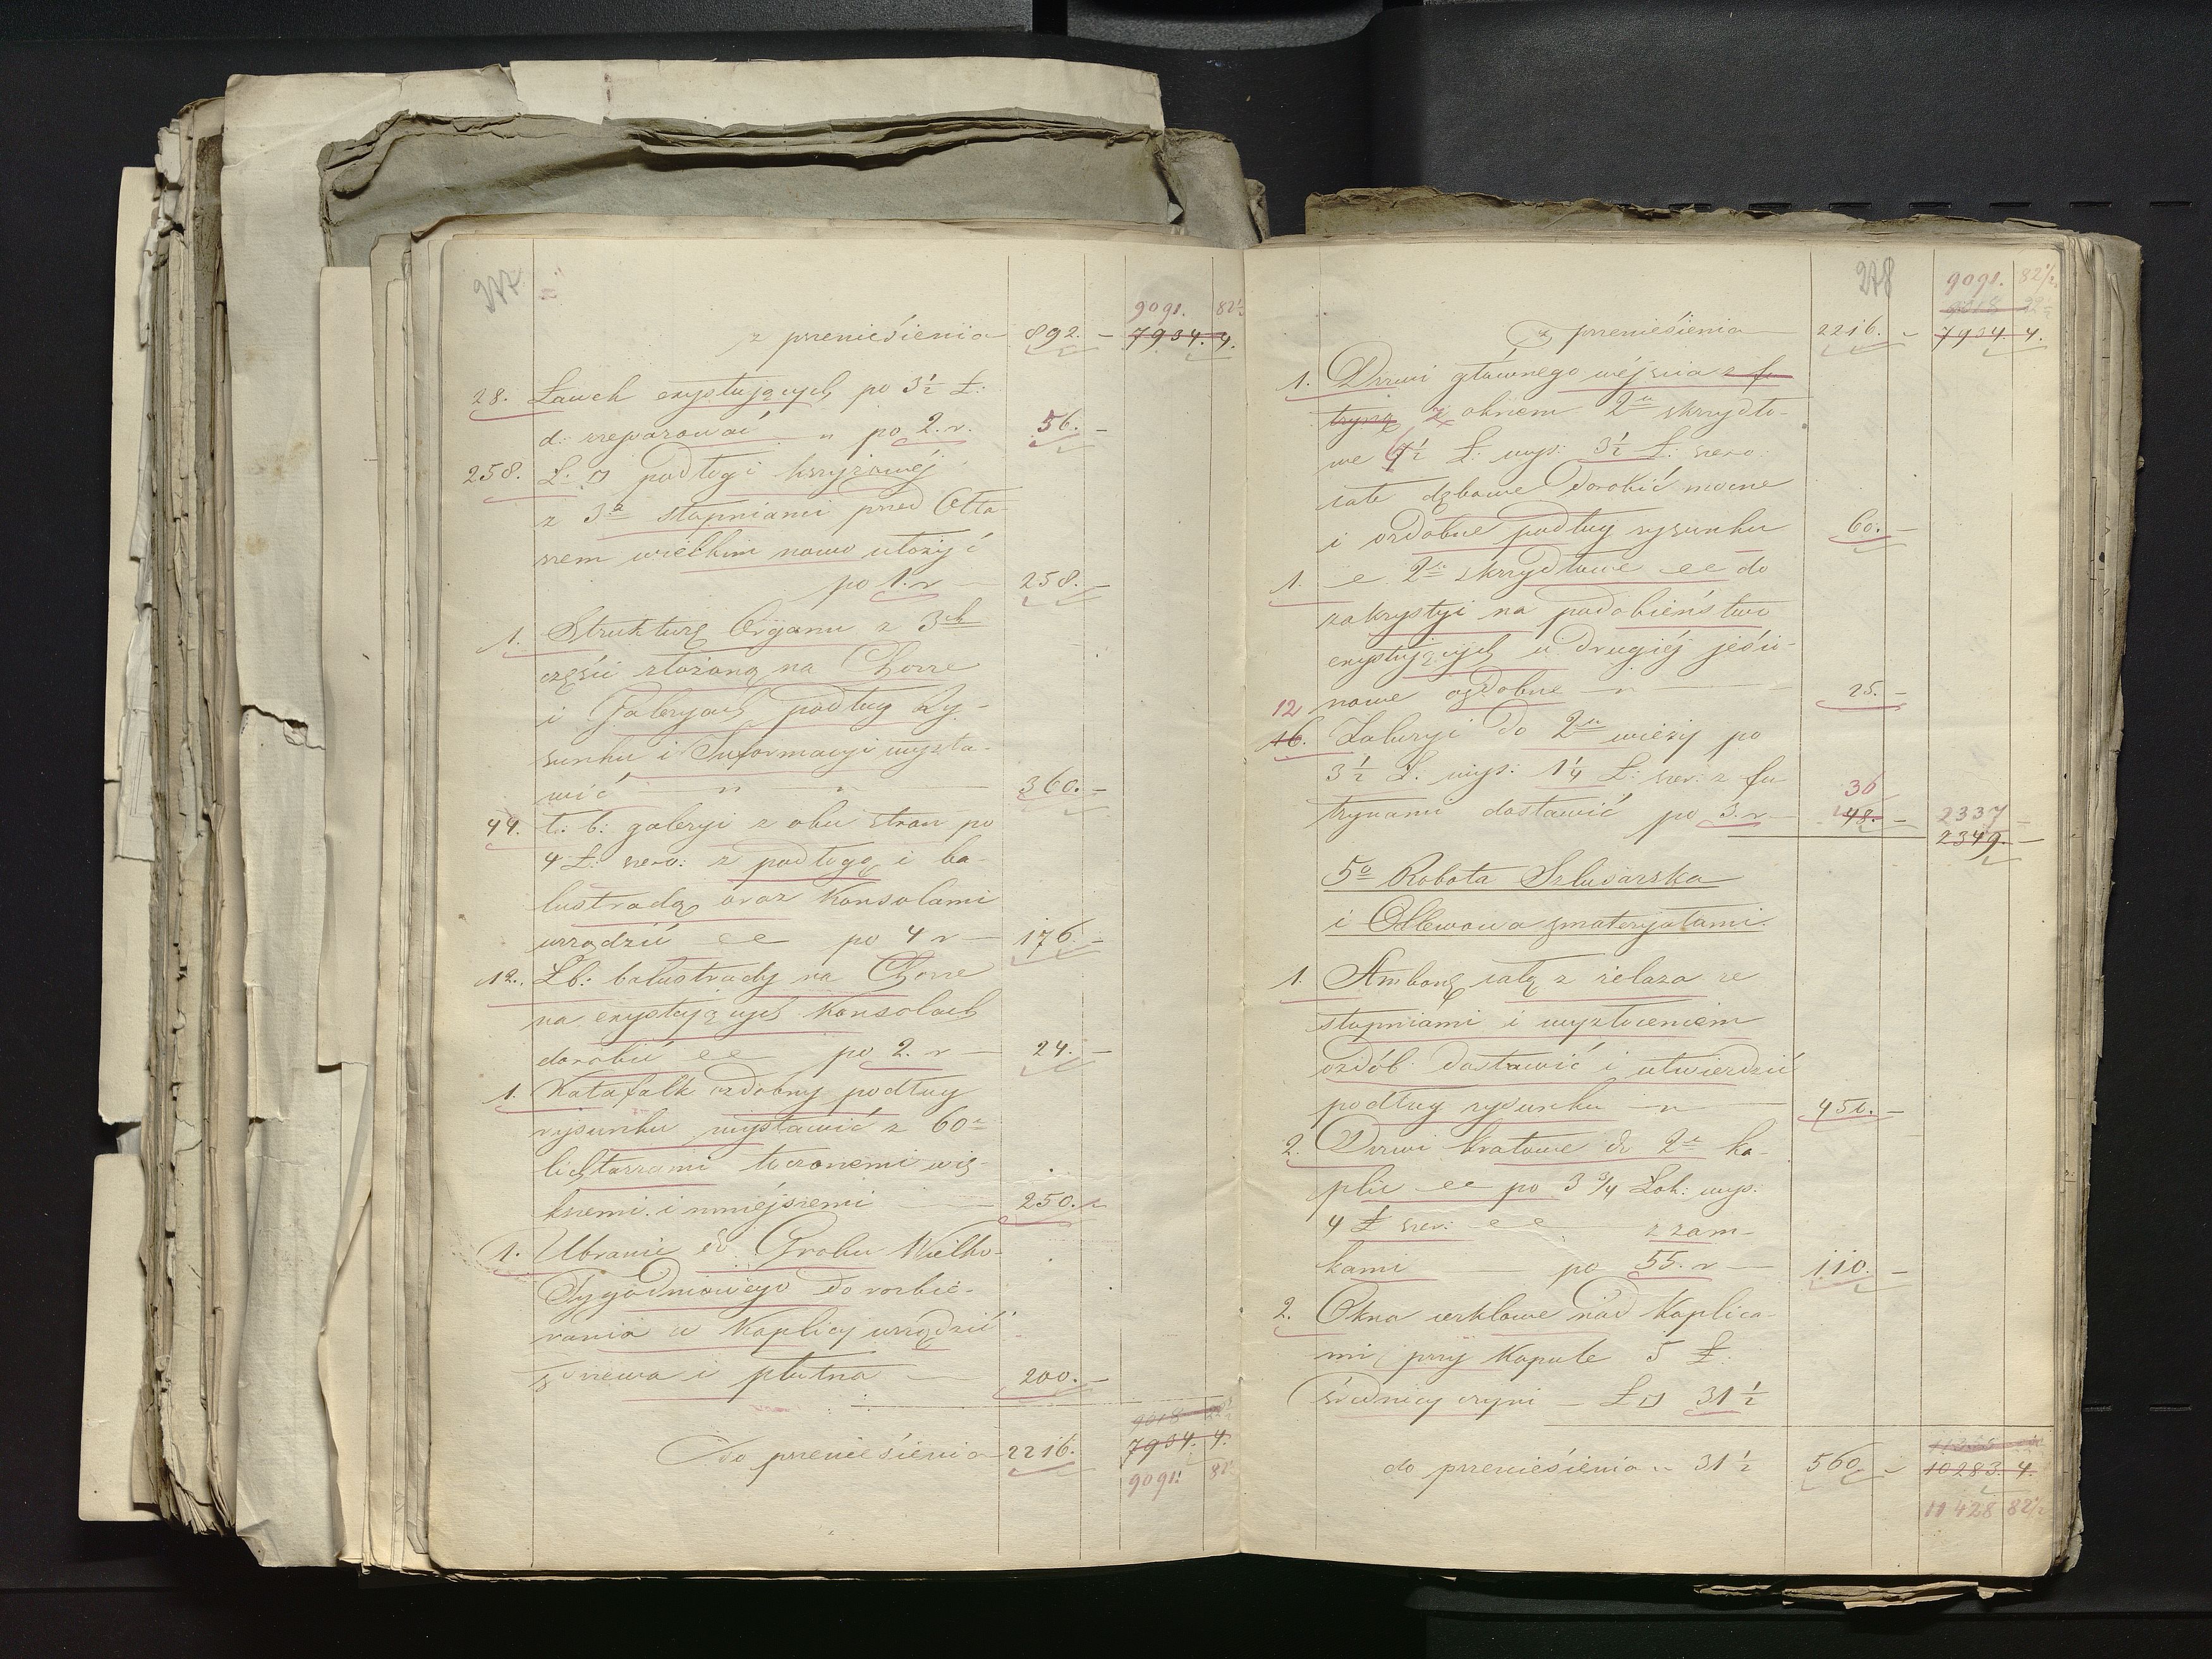 277
9091. 82½
z preniesienia 892. – 7934. 4.
28. Ławek exystujących po 3½ Ł:
d: zreparować " po 2. r. 56. –
258. Ł: □ podłogi krzyżowéj
z 3a stopniami pned Ołta-
rzem wielkim nowo ułożyć
po 1. r – 258. –
1. Strukturę Organu z 3ch
części złożoną na Chorze
i Galeryach podług Ry-
sunku i Informacyi wysta-
wić " " 360. –
44. Ł: b: galeryi z obu stron po
4 Ł: szero: z podłogą i ba-
lustradą oraz Konsolami
urządzić ee po 4 r – 176. –
12. Łb: balustrady na Chorze
na exystujących Konsolach
dorobić ee po 2. r – 24. –
1. Katafalk ozdobny podług
rysunku wystawić z 60a
lichtarzami toczonemi wię-
kszemi i mniéjszemi 250. –
1. Ubranie do Grobu Wielko-
Tygodniowego do rozbie-
rania w Kaplicy urządzić
z drzewa i płótna 200. –
9018
do preniesienia 2216. 7934. 4.
9091. 82
278 9091. 82½
9018 22½
z preniesienia 2216. – 7934. 4.
1. Drzwi głównego wéjscia z fu-
tryną z oknem 2u skrzydło-
we 7½ Ł: wys: 3½ Ł: szero:
całe dębowe dorobić mocne
i ozdobne podług rysunku 60. –
1. e 2u skrzydłowe ee do
zakrystyi na podobieństwo
exystujących u drugiéj jesio-
nowe ozdobne – " – 25. –
12
16. Żaluzyi do 2u wieży po
3½ Ł. wys: 1¼ Ł: szer: z fu-
36
trynami dostawić po 3. r – 48. – 2337 –
2349. –
5o Robota Szlusarska
i Odlewowa z materyałami.
1. Ambonę całą z żelaza ze
stopniami i wyzłoceniem
ozdób dostawić i utwierdzić
podług rysunku – " – 450. –
2. Drzwi kratowe do 2u ka-
plic ee po 3¾ Łok: wys:
4 Ł szer: ee z zam-
kami – po 55. r – 110. –
2. Okna cyrklowe nad Kaplica-
mi pnzy Kopule 5 Ł:
średnicy czyni – Ł □ 31½
do preniesienia " 31½ 560. – 10283. 4.
11428 82½